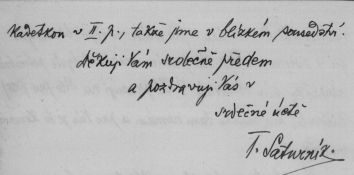 v II. p., takže jsme v blízkém sousedství.
děkuji Vám srdečně předem
a pozdravuji Vás v
srdečné úctě
T. Saturník.